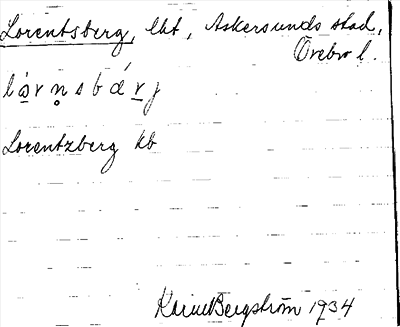 Lorentsberg, lht, Askersunds stad,
Örebro l.
Lorentzberg kb
Karin Bergström 1934